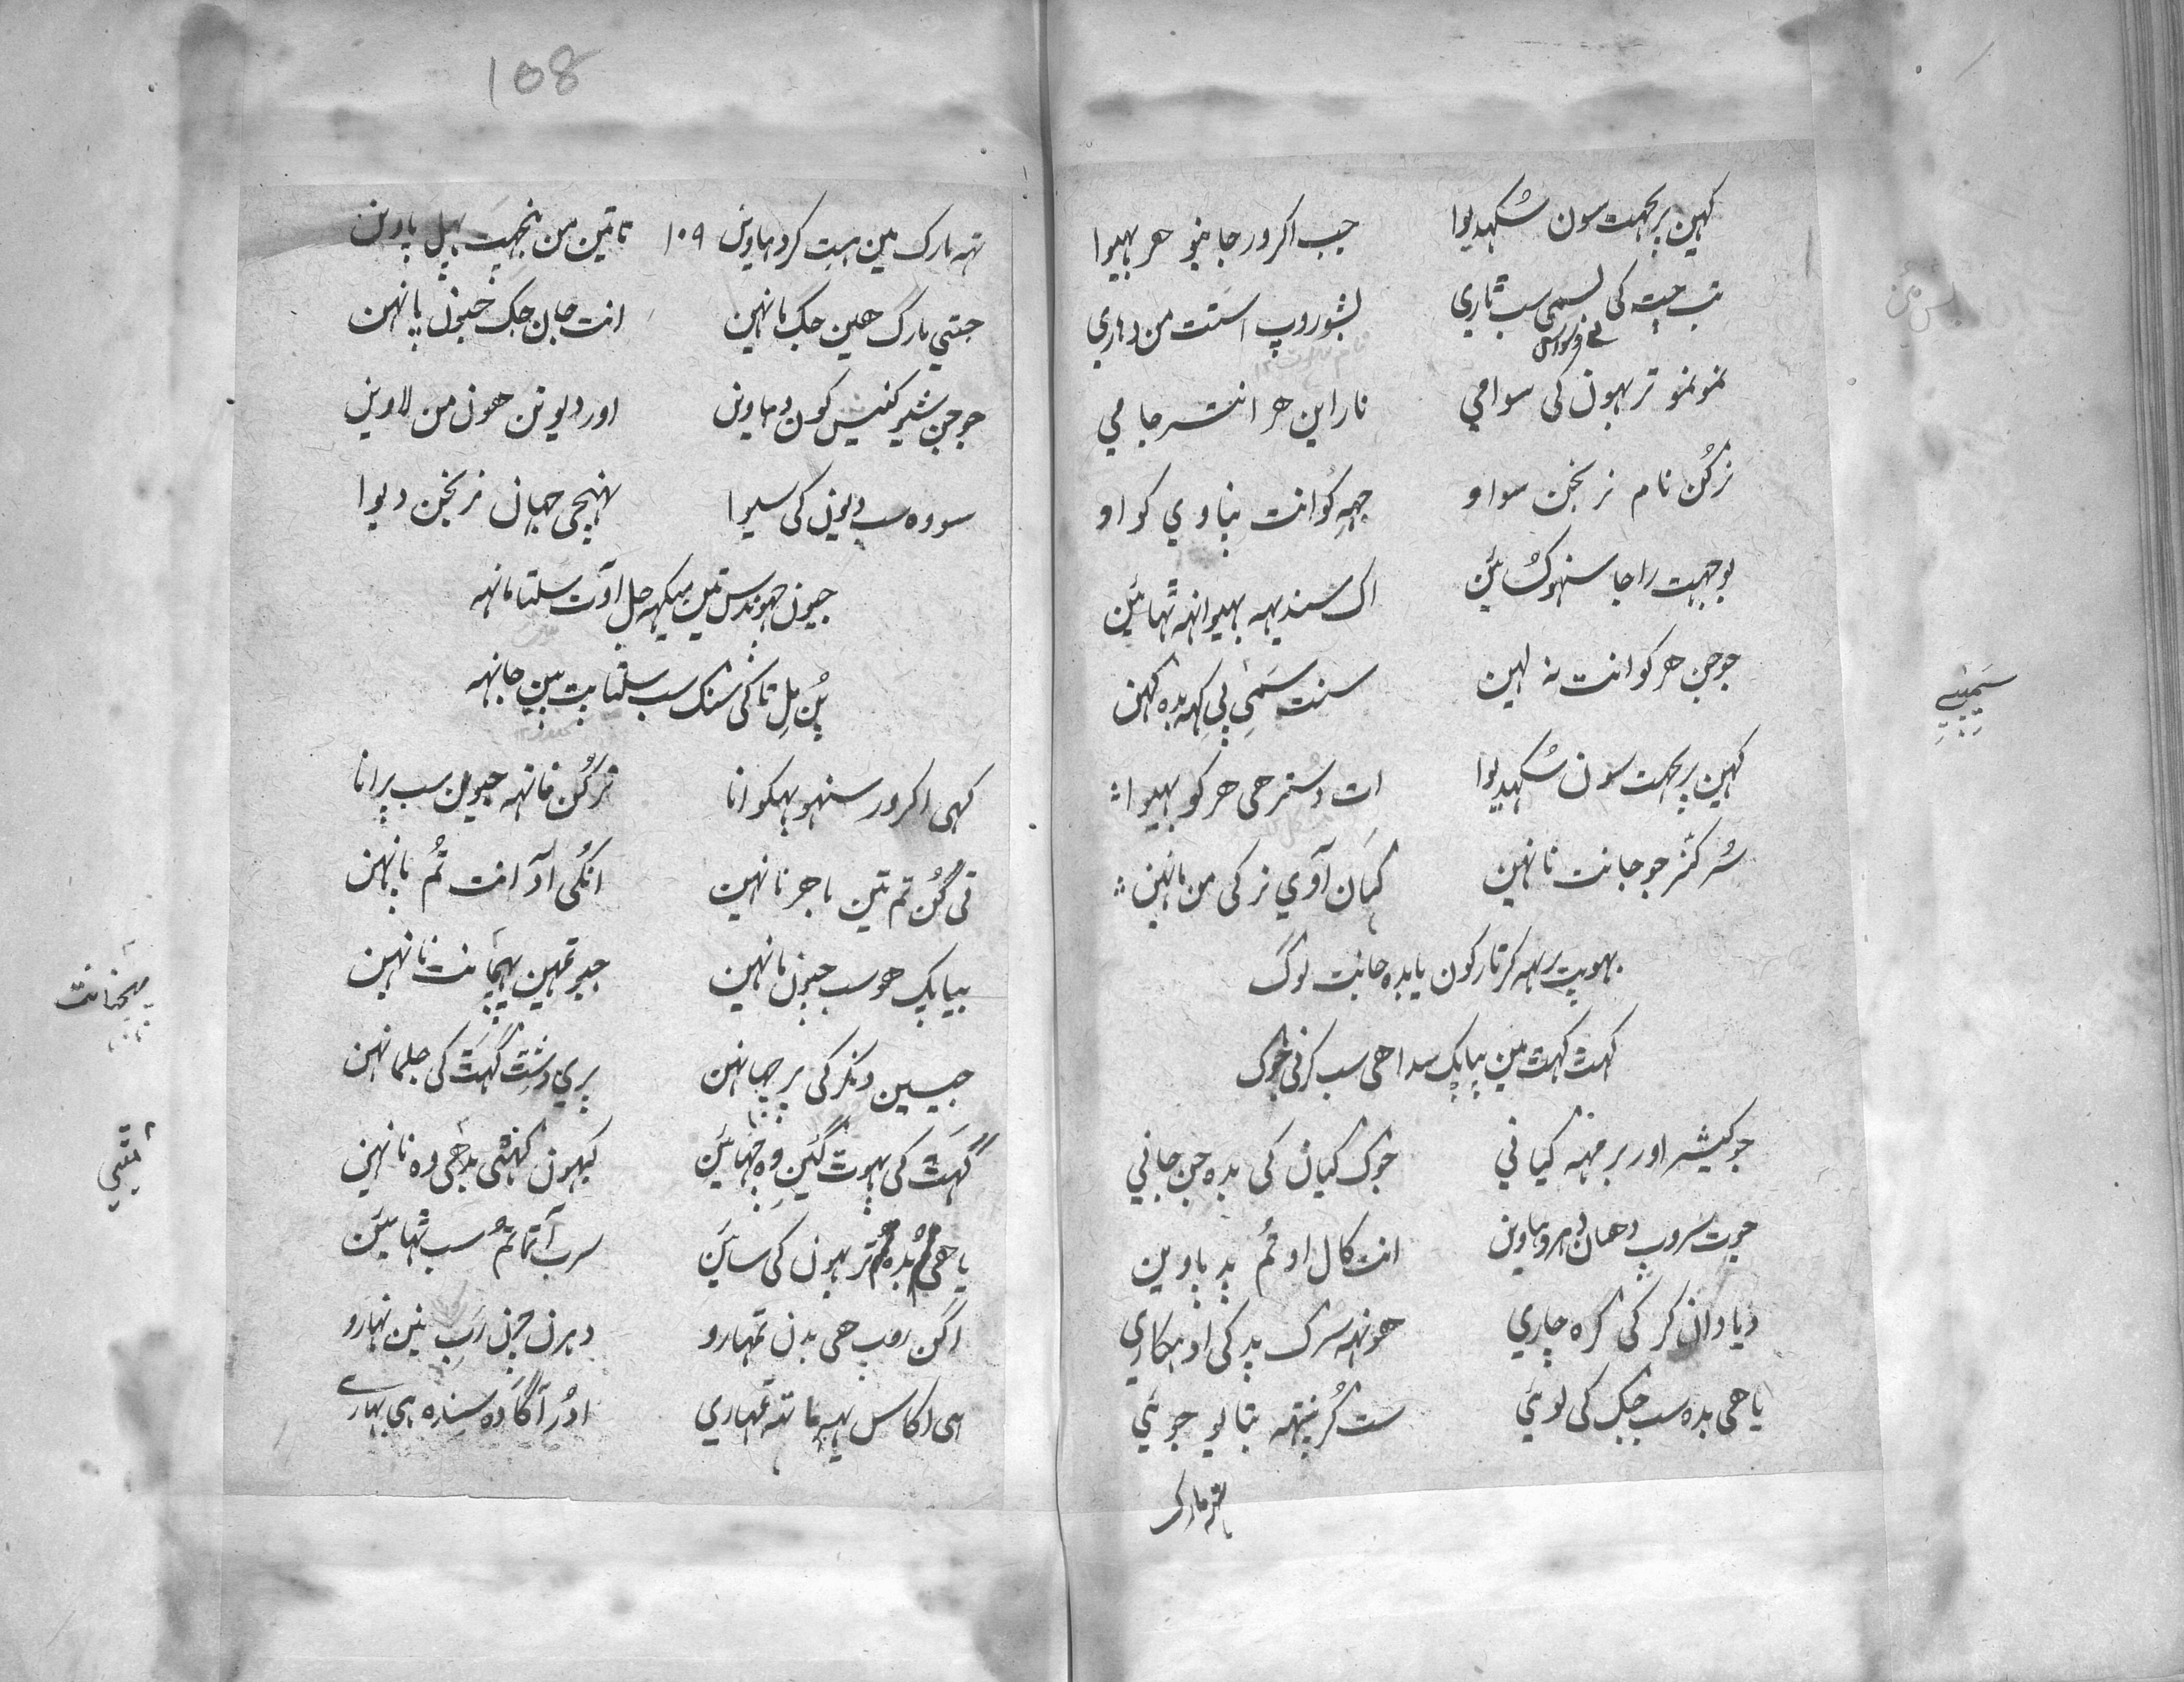 کہین پریچہت سون سُکہدیوا جب اکرور جانیو هر بہیوا
تب چت کی سب ٹاری لبشوروپ استت من دہاری
نمو نمو تربہون کی سوامی ناراین هر انتر جامی
نرگن نام نرنجن سواو جہہ کو انت نپاوی کواو
بوجہت راجا سنہو گسائین اک سندیہہ بہیو انہہ ٹہائین
جوجن هر کو انت نہ لہین سنت سَمَی پی کہہ بدہ کہین
کہین پریچہت سون سُکہدیوا ات دُستر هی هر کو بہیوا
سُر کنّر جو جانت نانہین گیان آوی نر کی من مانہین
بہوپت رہہ کرتار کون یا بدہ جانت لوگ
گہٹ گہٹ مین بیاپک سدا هی سب کرنی جوگ
جوگیشر اور برمہہ گیانی جوگ گیان کی بدہ جن جانی
جوت سروپ دهیان دہاوین انت کال او تُم پد پاوین
دیا دان کر کی گرہ چاری هونہہ سُرگ پد کی ادہکاری
یا هی بدہ سب جگ کی لوئی ست گُر پنتہہ بتایو جوئی
تہہ مارگ
سَمَیپی
تہہ مارگ مین هت کر دہاوین ۱۰۹ تاتین من بنچہت پہل پاوین
جتی مارگ هین جگ مانہین انت جان جگ جیون پانہین
جوجن شیو گنیس کون دہاوین اور دیوتن هون من لاوین
سو وہ سب دیون کی سیوا پہنچی جہان نرنجن دیوا
جیون چہوندس تین میگہہ جل آوت سلتا مانہہ
پُن مِل تاکی سنگ سب سلتا پت مین جانہہ
کہی اکرور سنہو بہگوانا نرگُن مانہہ جیون سب پرانا
تی گُن تم تین باهر نانہین انکی آد انت تُم پانہین
بیاپک هو سب جیون مانہین جیو تمہین پہچانت نانہین
جیسین دنکر کی پرچہانہین پری دشٹ گہٹ کی جل مانہین
گہٹ کی پہوٹ گئین وہ چہائین کہون گہٹی بدهی وہ نانہین
یا هی بدہ تربہون کی سائین سرب آتما تُم سب ٹہائین
اگن روپ هی بدن تمہارو دہرن چرن رَب نین نہارو
هی اکاس یہہ ماتہہ تمہاری
پہچانت
108